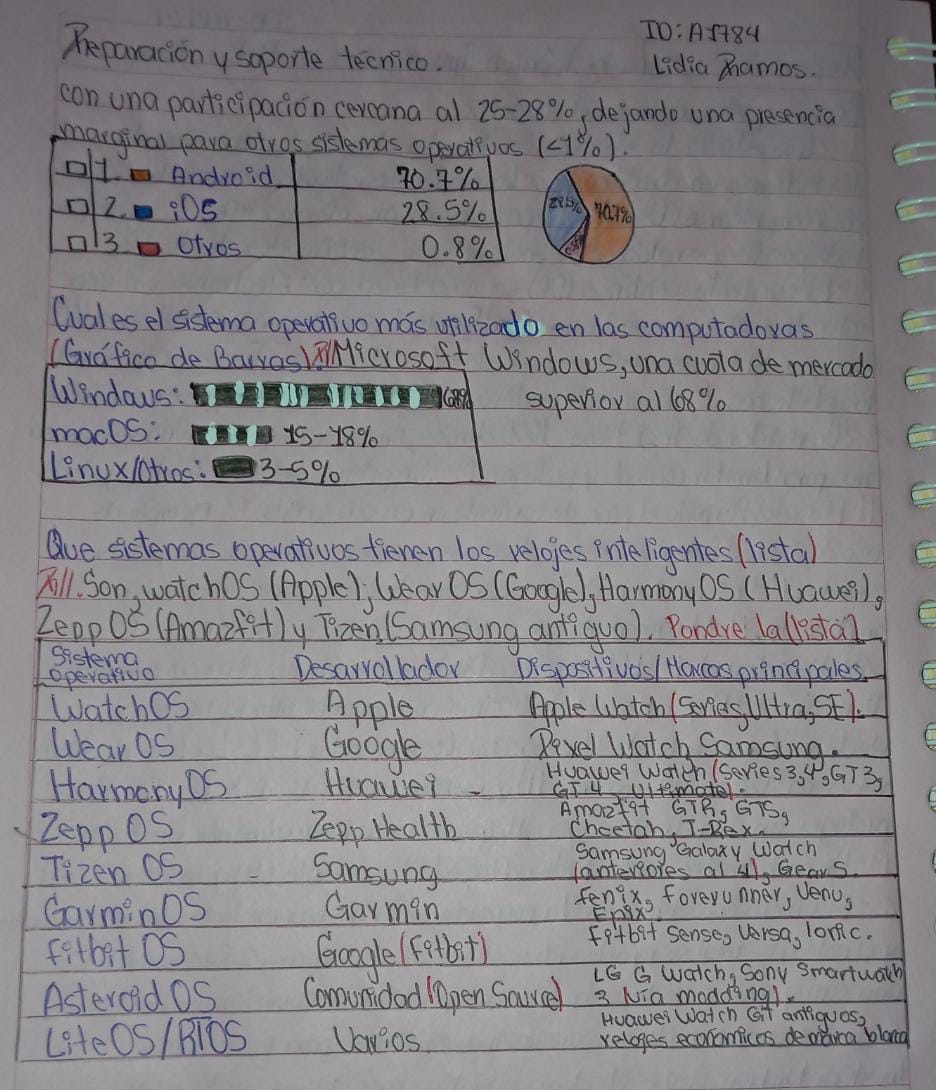 ID: A1784
Reparación y soporte técnico.
Lidia Ramos.
con una participación cercana al 25-28%, dejando una presencia
marginal para otros sistemas operativos (<1%).
1. Android 70.7%
2. iOS 28.5%
3 Otros 0.8%
28.5% 70.7%
Cual es el sistema operativo más utilizado en las computadoras
(Gráfico de Barras) R// Microsoft Windows, una cuota de mercado
superior al 68%
Windows: 68%
macOS: 15-18%
Linux/Otros: 3-5%
Que sistemas operativos tienen los relojes inteligentes (lista)
R//. Son, watchOS (Apple), Wear OS (Google), Harmony OS (Huawei),
Zepp OS (Amazfit) y Tizen (Samsung antiguo). Pondre la (lista)
Sistema
operativo Desarrollador Dispositivos/Marcas principales
WatchOS Apple Apple Watch (Series, Ultra, SE).
Wear OS Google Pixel Watch Samsung.
Harmony OS Huawei Huawei Watch (Series 3, 4, GT 3,
GT 4, Ultimate).
Zepp OS Zepp Health Amazfit GTR, GTS,
Cheetah, T-Rex.
Tizen OS Samsung Samsung Galaxy Watch
(anteriores al 4), Gear S.
Garmin OS Garmin Fenix, Forerunner, Venu,
Epix.
Fitbit OS Google (Fitbit) Fitbit Sense, Versa, Ionic.
Asteroid OS Comunidad (Open Source) LG G Watch, Sony Smartwatch
3 (Via modding).
Lite OS/RTOS Varios Huawei Watch GT antiguos,
relojes economicos de marca blanca